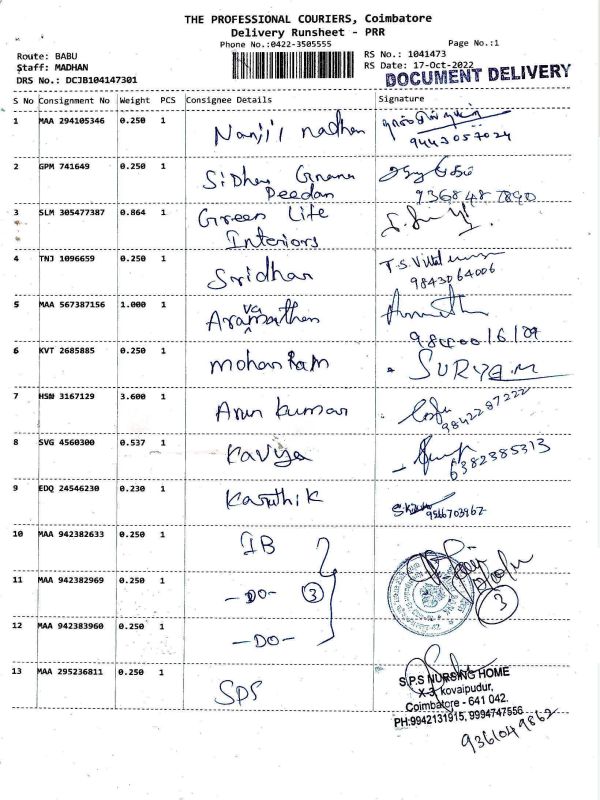 THE PROFESSIONAL COURIERS, Coimbatore
Delivery Runsheet - PRR
Phone No.:0422-3505555
Page No.:1
Route: BABU
Staff: MADHAN
DRS No.: DCJB104147301
RS No.: 1041473
RS Date: 17-Oct-2022
DOCUMENT DELIVERY
S No Consignment No Weight PCS Consignee Details Signature
1 MAA 294105346 0.250 1 Nanji'l nadhan
9443057024
2 GPM 741649 0.250 1 Sidhar Gnana Peedan
9368487890
3 SLM 305477387 0.864 1 Green Life
Interiors
4 TNJ 1096659 0.250 1 Sridhar T.S.
9843064006
5 MAA 567387156 1.000 1
6 KVT 2685885 0.250 1 mohan Ram SURYA.M
7 HSN 3167129 3.600 1 Arun kumar
9842287222
8 SVG 4560300 0.537 1 Kavya
6382385313
9 EDQ 24546230 0.230 1 Karthik
9566703967
10 MAA 942382633 0.250 1 IB
11 MAA 942382969 0.250 1 -DO- 3 3
12 MAA 942383960 0.250 1 -DO-
13 MAA 295236811 0.250 1 SPS
S.P.S NURSING HOME
X-3, kovaipudur,
Coimbatore - 641 042.
PH:9942131915, 9994747556
9361049862